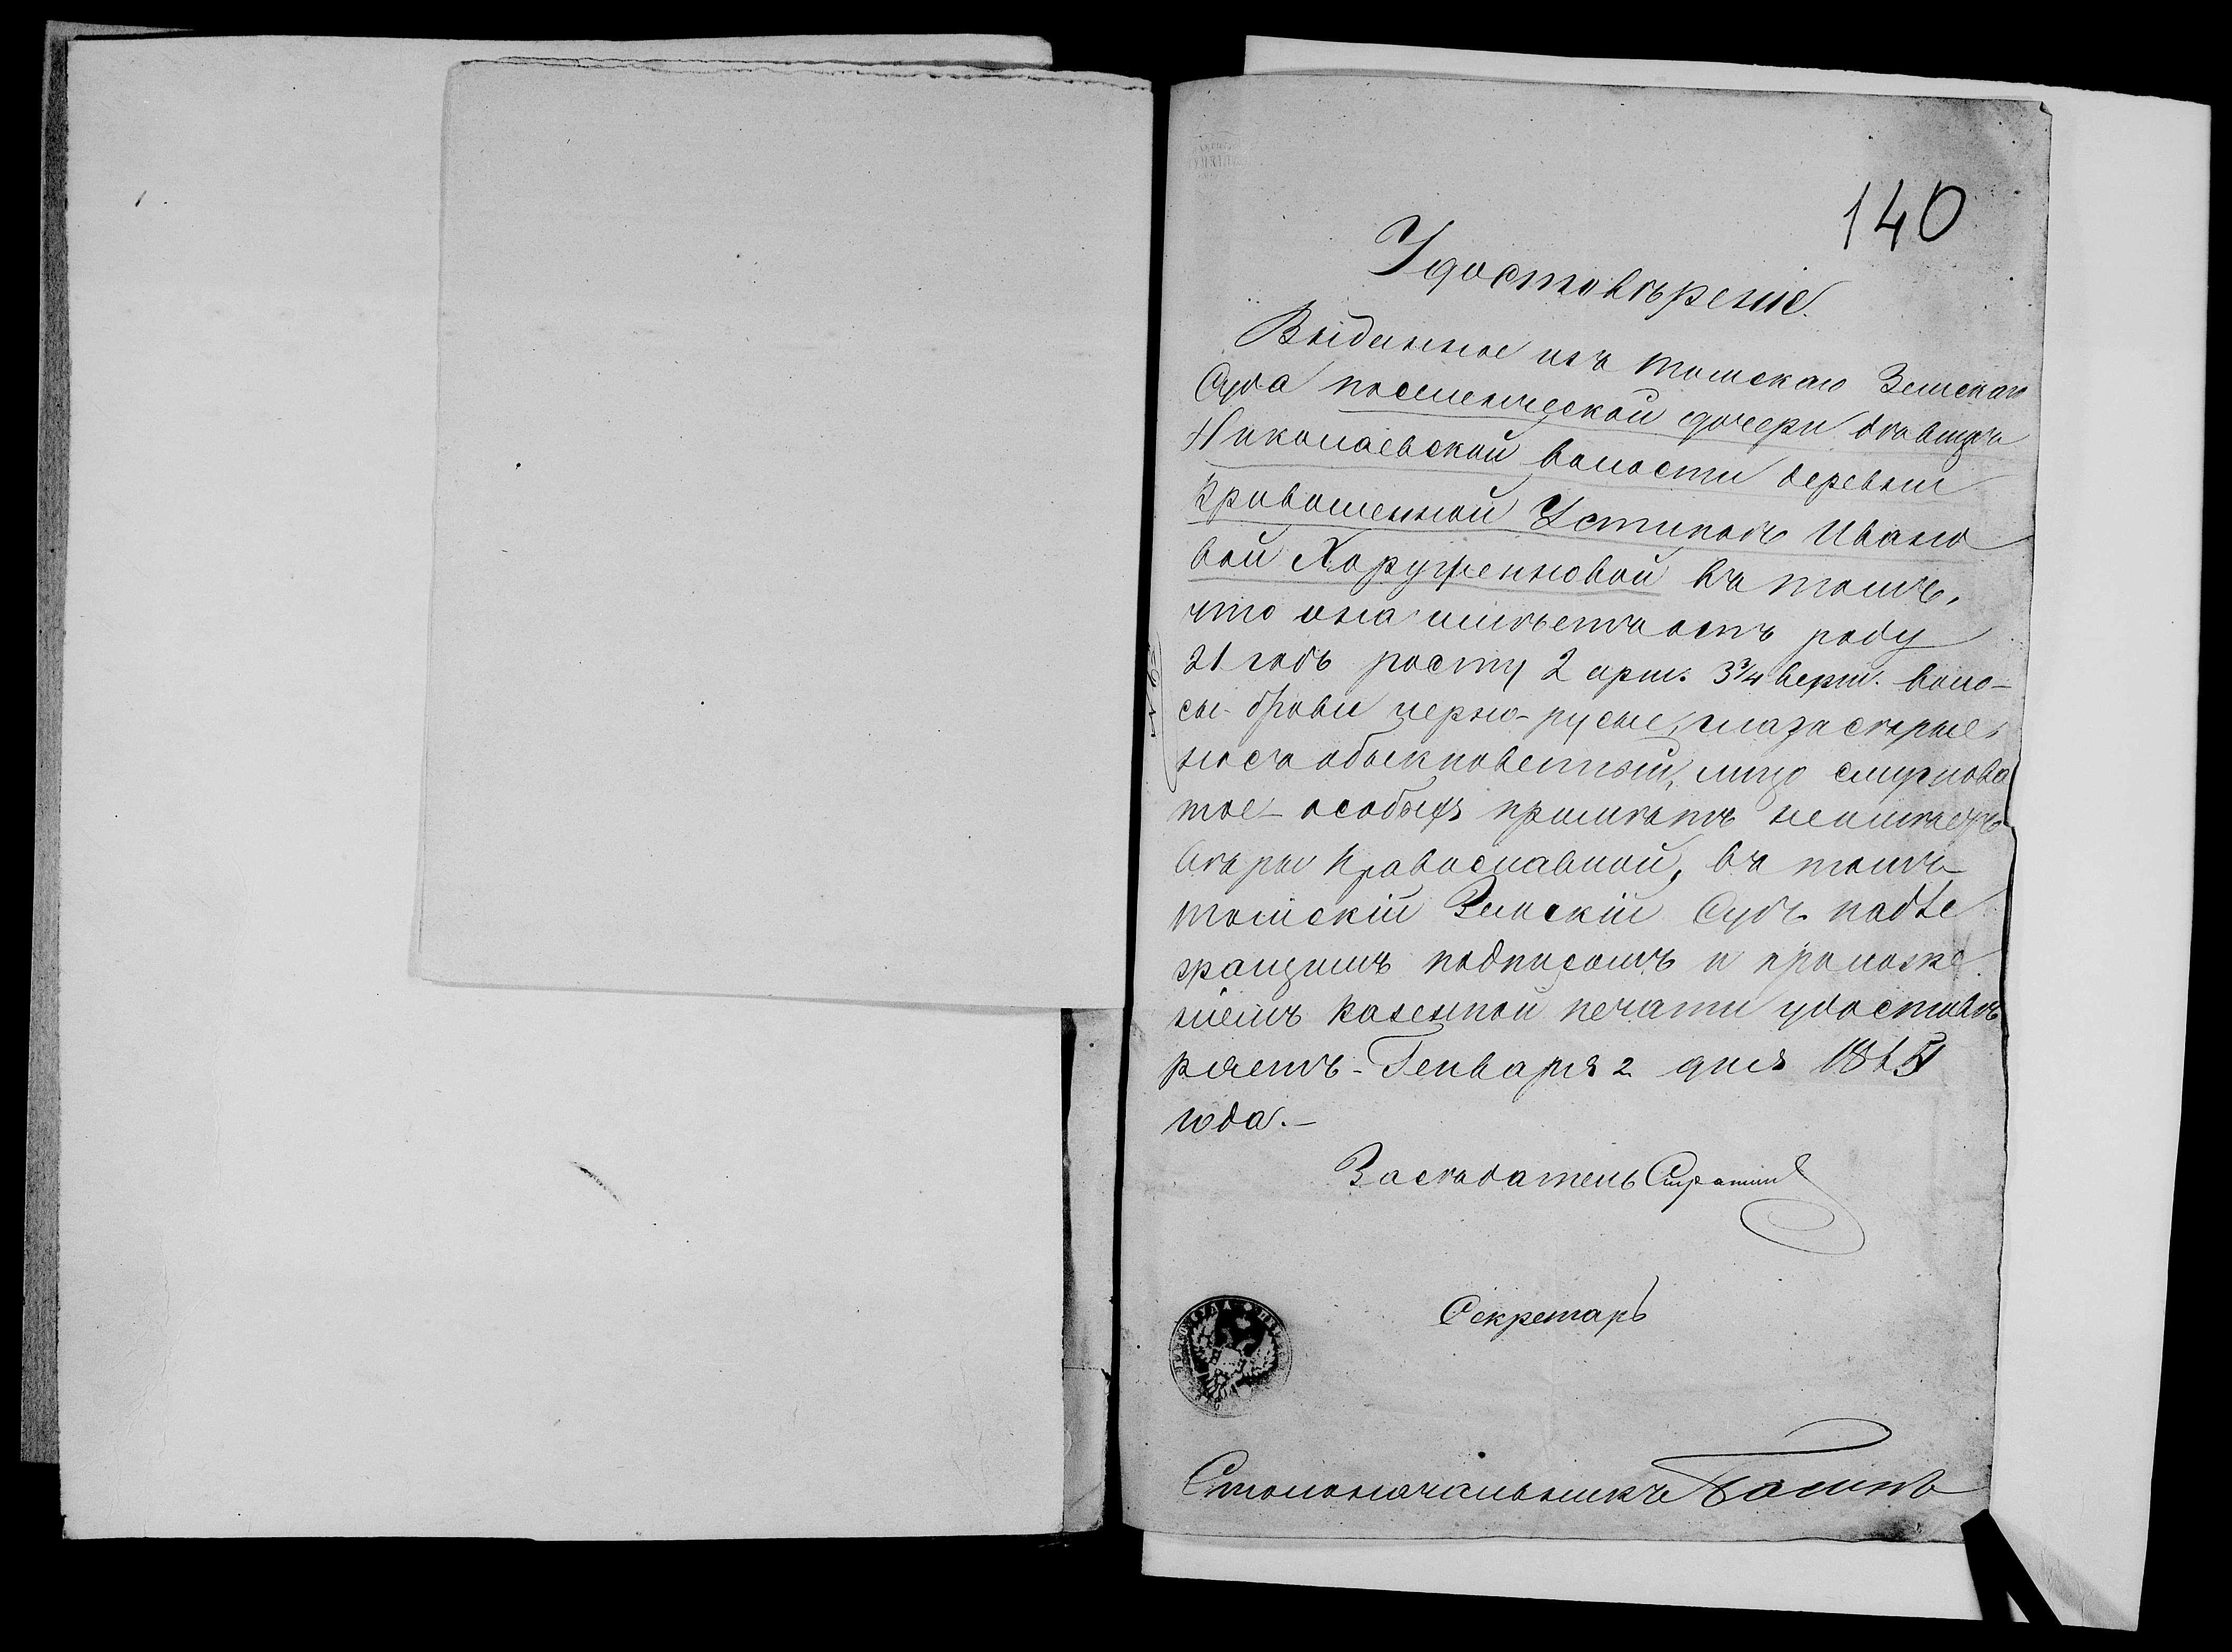 140
Удостовѣреніе.
Выданное изъ томскаго Земскаго
Суда поселенческой дочери дѣвицѣ
Николаевской волости деревни
Кривошеиной Устиньѣ Ивано
вой Хоруженковой въ томъ,
что она имѣетъ отъ роду
21 годъ росту 2 арш. 3¾ верш. воло-
сы брови черно-русые, глаза серые,
носъ обыкновенный, лицо смуглова
тое особыхъ примѣтъ неимѣетъ
Вѣры Православной, въ томъ
томскій Земскій Судъ надле
жащимъ подписомъ и приложе
ніемъ казенной печати удостовѣ
ряетъ - Генваря 2 дня
года.-
Засѣдатель
Секретарь
Столоначальникъ